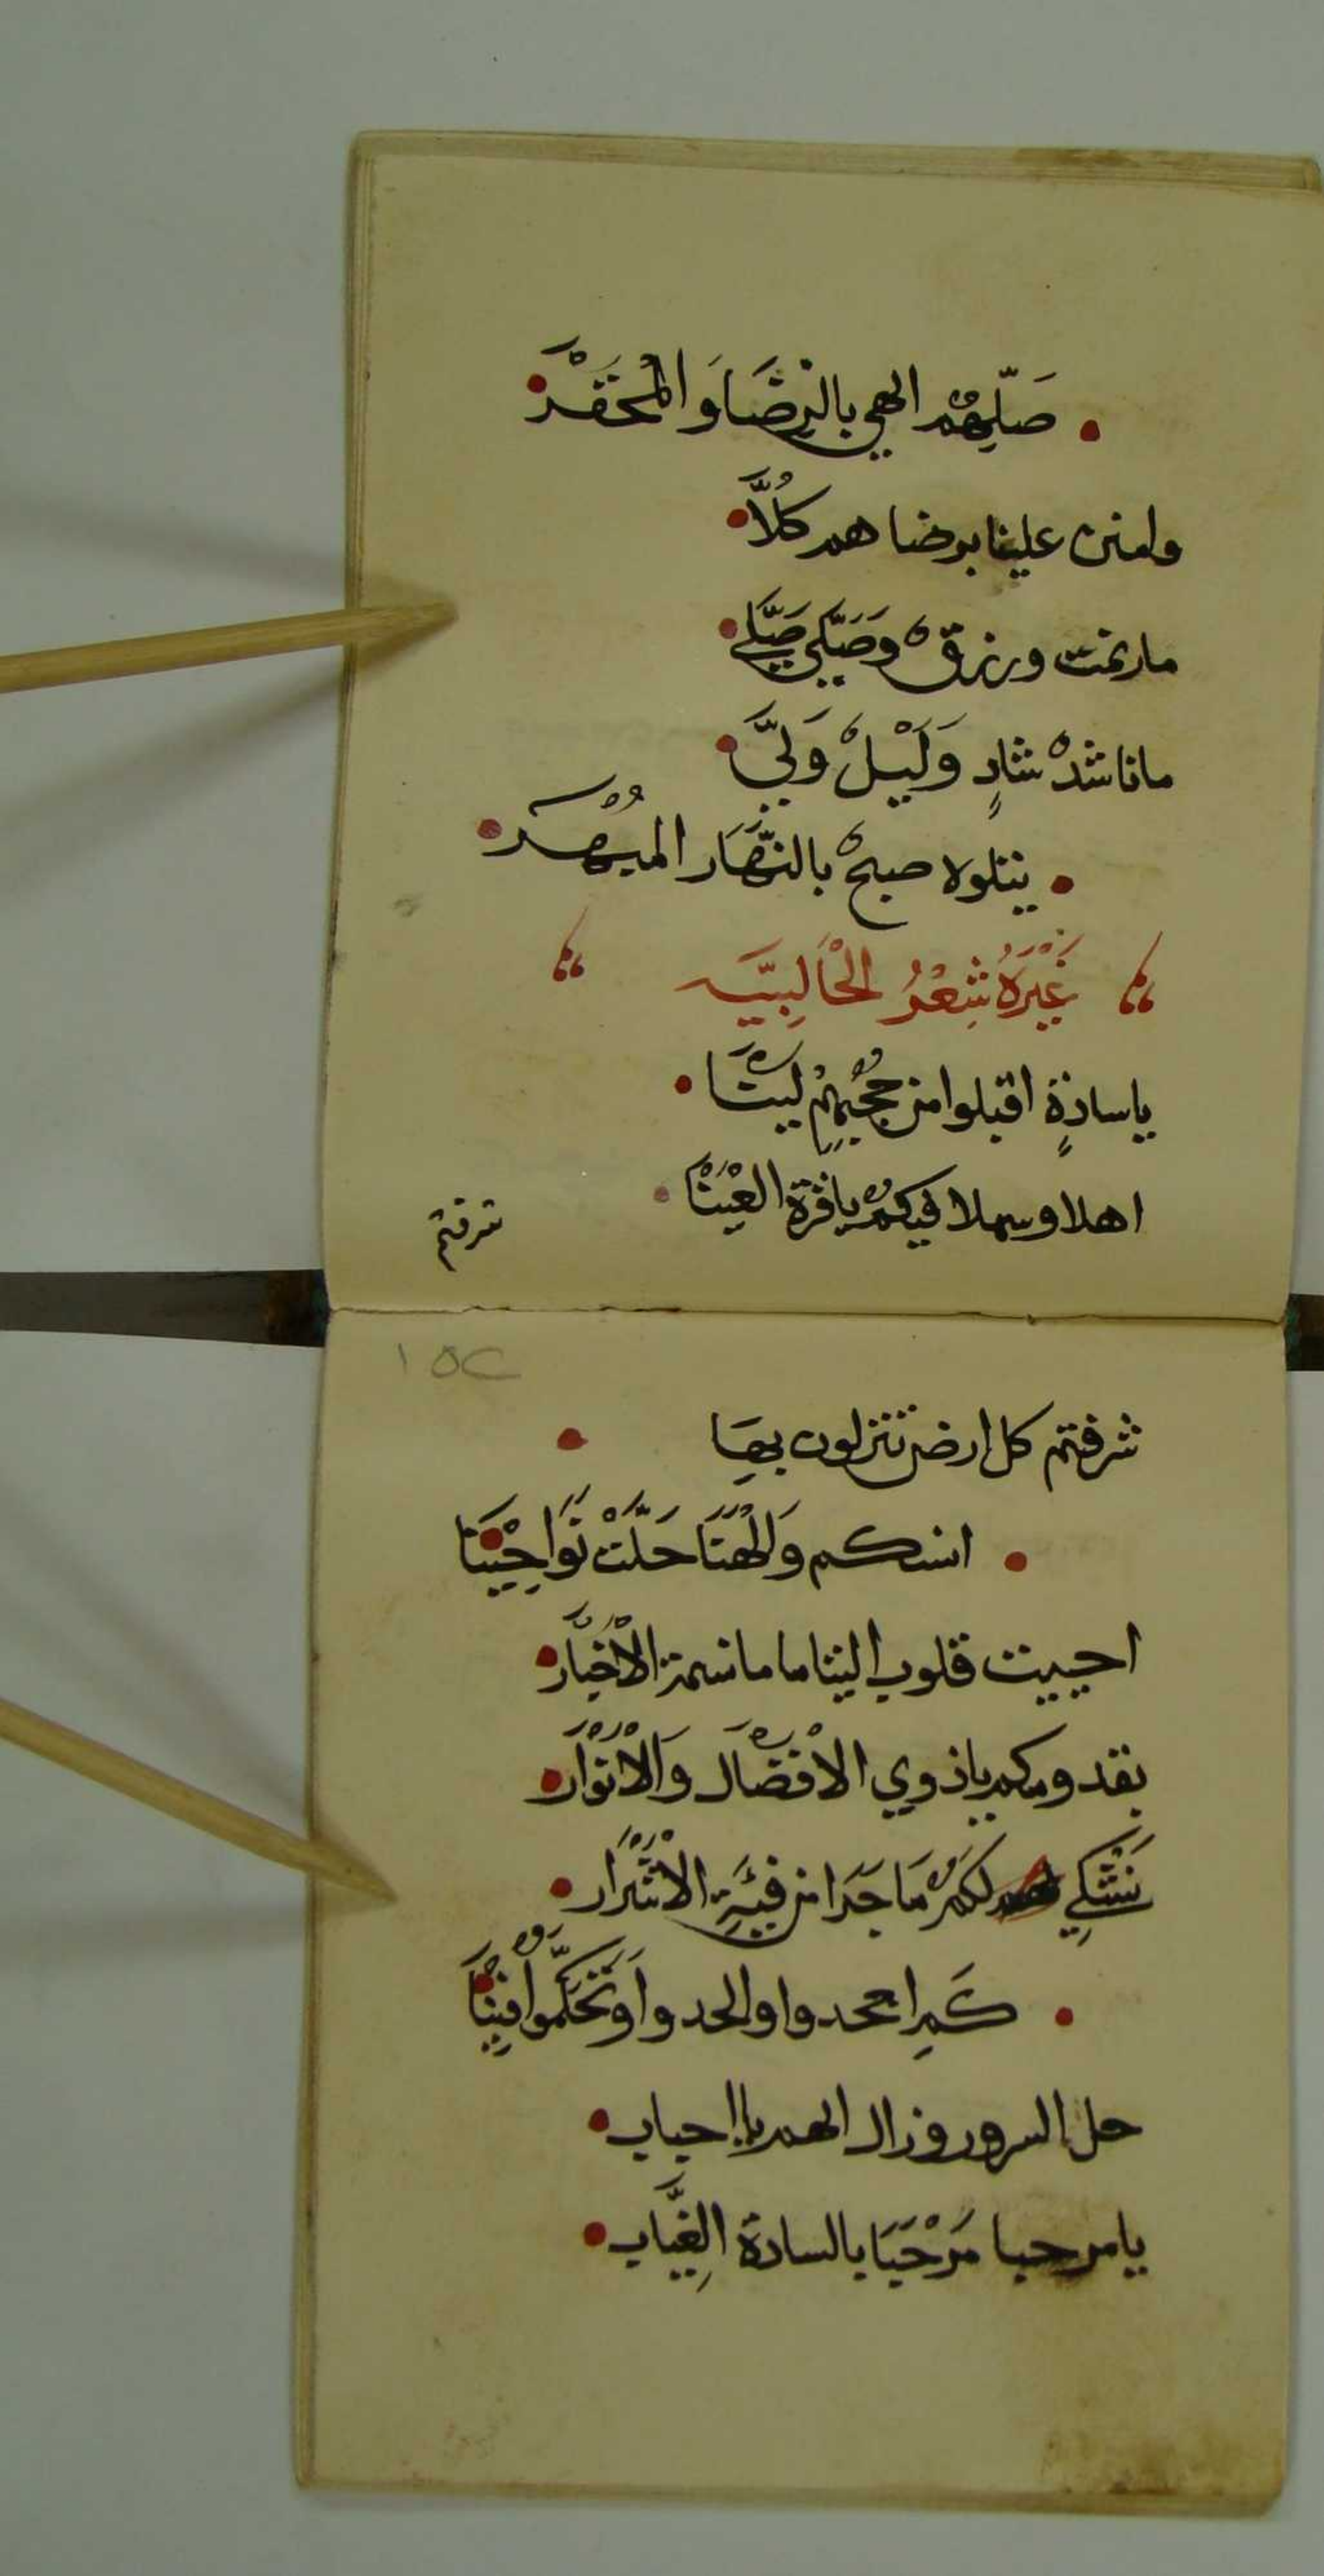 صَلِّهمْ الهي بالرِضَا وَ المحَقَرْ
وامنن علينا برضاهم كُلاَّ
مارنمت ورزقٌ وَصَلَّي صَلّي
ماناشدْ شادٍ وَلَيْلٌ وَلّيَ
يتلوه صبحٌ بالنَّهَار المبْهر
غَيْرَهُ شِعْرُ الحْاَلِبِيَّه
ياسادةٍ اقبلوا من حجيهِمْ لينَا
اهلا وسهلا فيكمْ ياقرة العَيْنَا
شرفتم
١٥٢
شرفتم كل ارض تنزلون بهَا
انسكم وَالهْنَا حَلَّتْ نَوَاحِيْنَا
احييت قلوب اليتاما مانسمة الأخْيَار
بقدومكم ياذوي الأفْضَال وَالأنْوَار
نَشْكِي لكمْ مَا جَرَا من فيَةِ الأشْرَار
كَمِ اجحدوا والحدوا وَتَحَكَّموا فِيْنَا
حل السرور وزال الهم يااحباب
يامرحبا مَرْحَبَا بالسادة الغِيَّاب